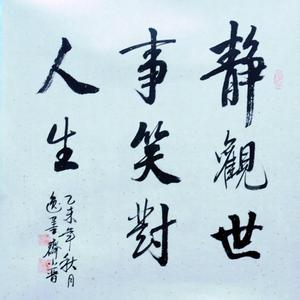 静觀世
事笑對
人生
乙未年秋月